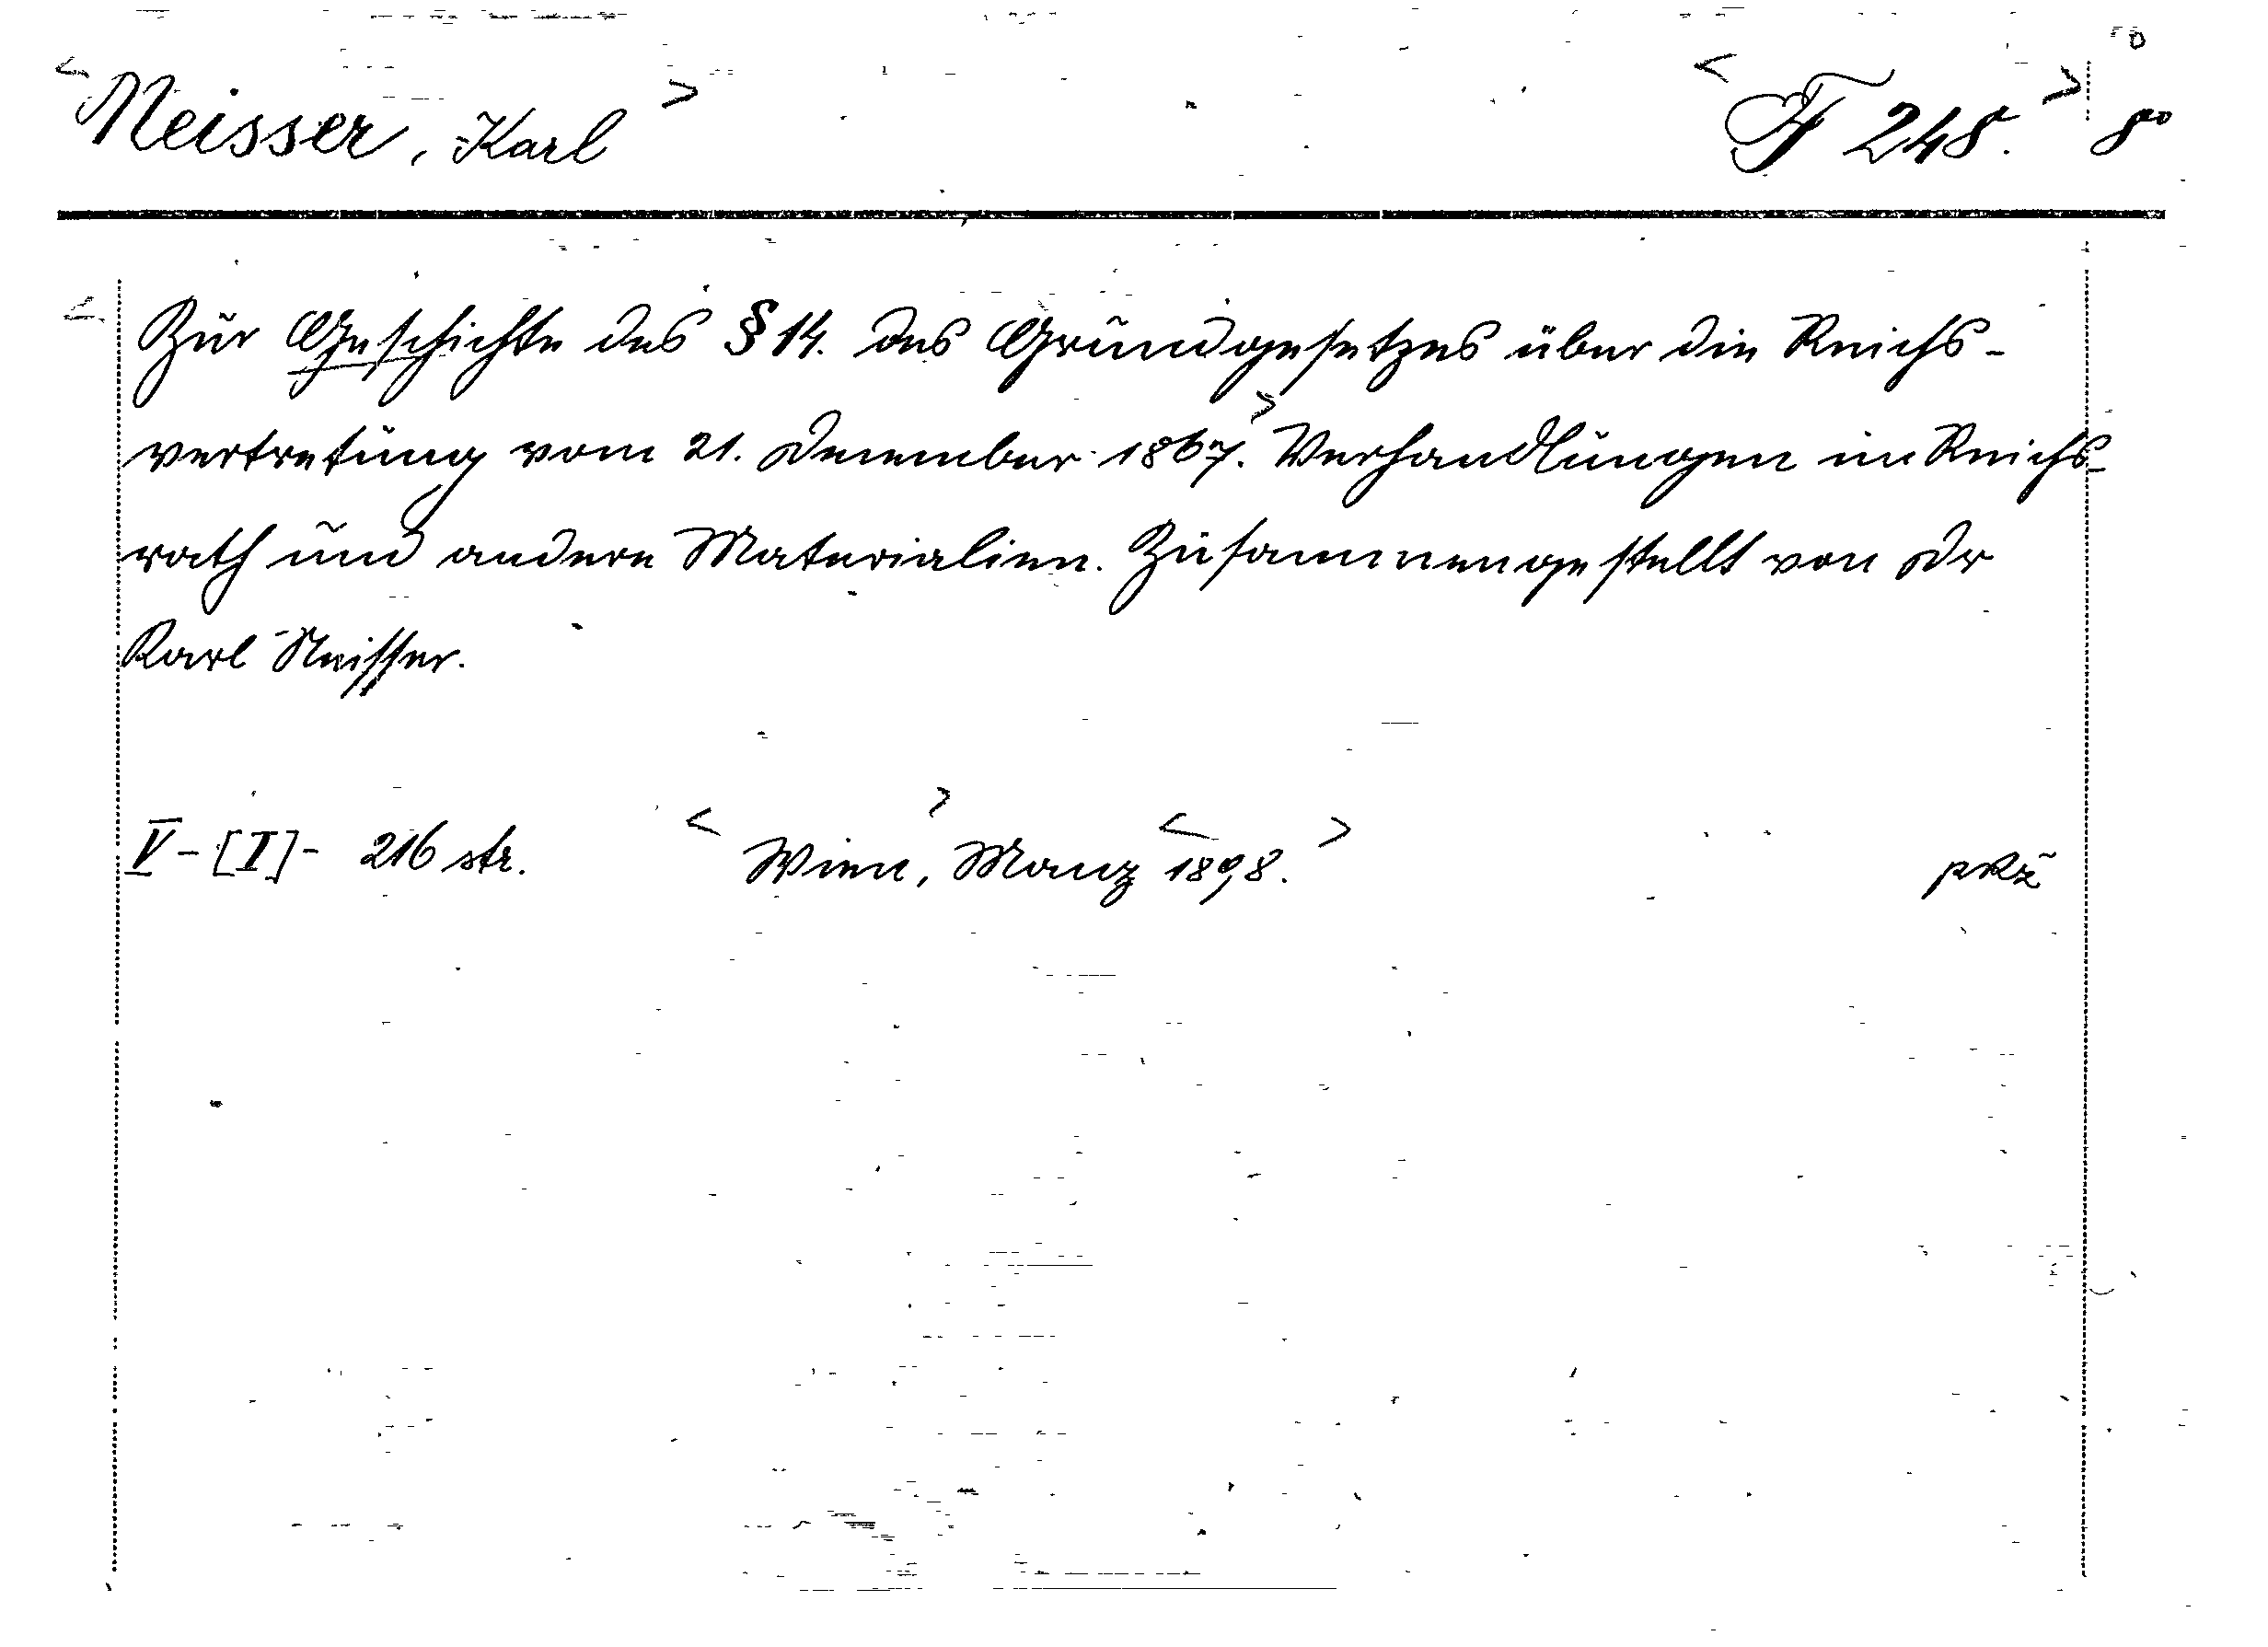 Neisser, Karl
F 248. 8°
Zur Geschichte des § 14. des Grundgesetzes über die Reichs-
vertretung vom 21. Dezember 1867. Verhandlungen im Reichs-
rath und andere Materialien. Zusammengestellt von Dr
Karl Neisser.
V-[I]- 216 str. Wien, Manz 1898.